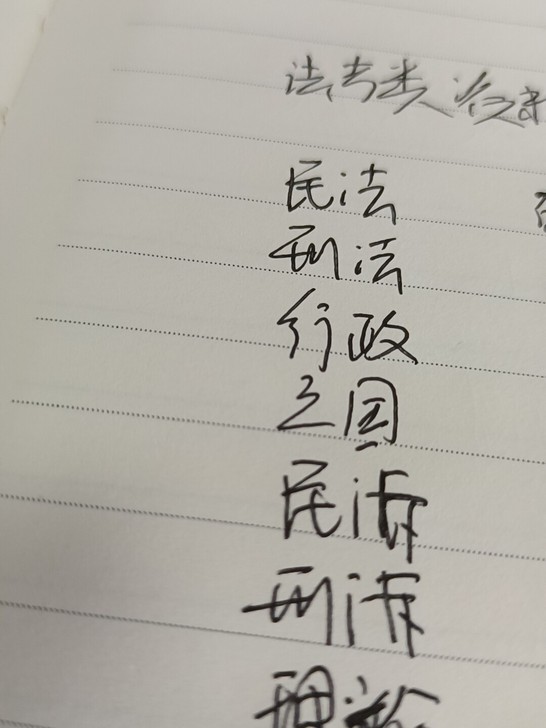 法考类
民法
刑法
行政
三国
民诉
刑诉
理论